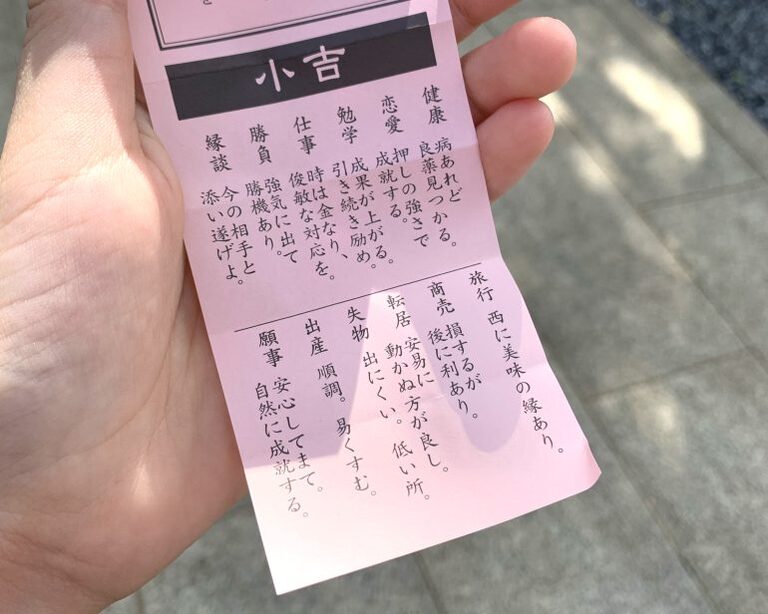 と
小吉
健康 病あれど
良薬見つかる。
恋愛 押しの強さで
成就する。
勉学 成果が上がる。
引き続き励め。
仕事 時は金なり、
俊敏な対応を。
勝負 強気に出て
勝機あり。
縁談 今の相手と
添い遂げよ。
旅行 西に美味の縁あり。
商売 損するが
後に利あり。
転居 安易に
動かぬ方が良し。
失物 出にくい。低い所。
出産 順調。易くすむ。
願事 安心してまて。
自然に成就する。